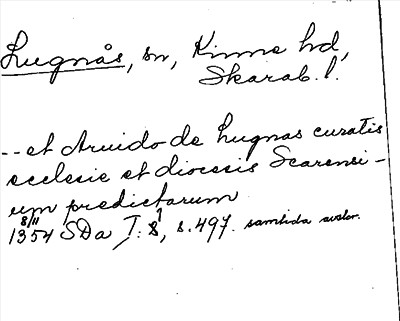 Lugnås, sn, Kinne hd,
Skarab. l.
-- et Aruido de Lugnas curatis
ecclesie et diocesis Scarensi-
um predictarum
8/11
1354 SDa I: 8, s. 497. samtida avskr.